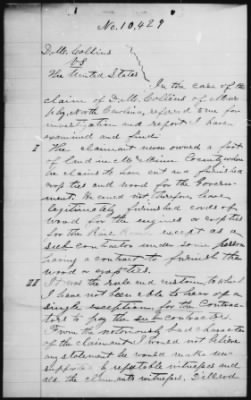 No. 10,429
D. M. Collins
VS
The United States
In the case of the
claim of D. M. Collins of Mur-
phy, North Carolina, referred to me for
investigation and report I have
examined and find:
I The claimant never owned a foot
of land in Mc Minn County where
he claims to have cut and furnished
crop ties and wood for the Govern-
ment. He could not therefore have
legitimately furnished cords of
wood for the engines or crop ties
for the Rail Road except as a
sub contractor under some person
having a contract to furnish the
wood or crop ties.
II It was the rule and custom to which
I have not been able to hear of a
single exception, for the Contrac-
tors to pay the sub contractors.
From the notoriously bad character
of the claimant I would not believe
any statement he would make un-
supported by reputable witnesses and
all the claimants witnesses,